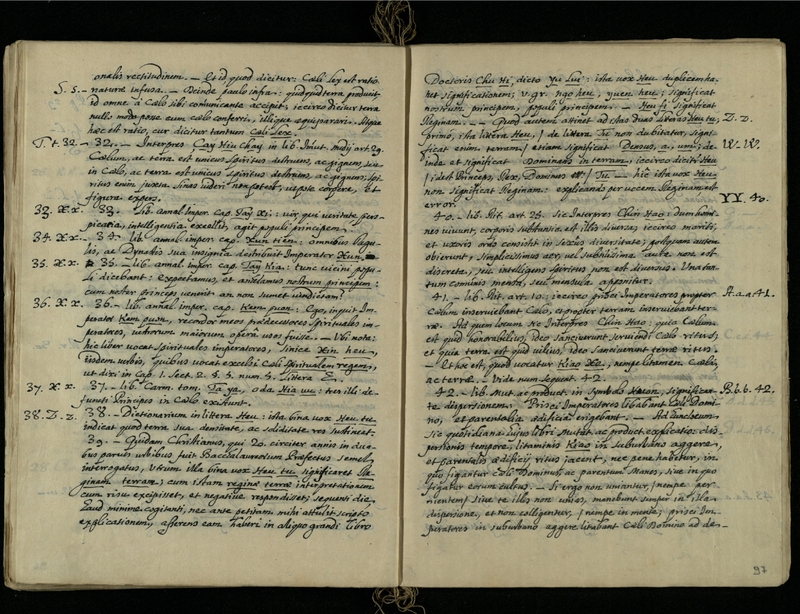 onalis rectitudinem. — Et id quod dicitur: Cæli lex est ratio
S. s. — naturæ infusa. — Deinde paulo infra: quidquid terra producit
id omne à Cælo sibi comunicante accipit; iccirco dicitur terra
nullo modo posse cum cælo conferri, illique æquiparari. Atque
hæc est ratio, cur dicitur tantum Cæli Lex.
T. t. 32. — 32. — Interpres Cay Hiu Chay in lib. Imut. Mdij art. 29.
Cælum, ac terra est unicus Spiritus destruens, ac gignens, sive
in Cælo, ac terra est unicus spiritus destruens, ac gignens; Spi-
ritus enim juxta Sinas videri non potest, utpote corpore, et
figura expers.
32. X. x. 33. — lib. annal. Imper. cap. Tay Xi: vir qui veritate pers-
picatia, intelligentia excellit, agit populi principem.
34. X. x. 34. — lib. annal. imper. cap. Xun tien: omnibus Regu-
lis, ac Dynastis sua insignia distribuit Imperator Xun.
35. X. x. 35. — lib. annal. imper. cap. Tay Kia: tunc vicini popu-
li dicebant: Expectamus, et anhelamus nostrum principem:
cum noster princeps venerit an non sumet vindictam?
36. X. x. 36. — lib. annal. imper. cap. Kem puon. Ego, inquit Im-
perator Kem puon, recordor meos prædecessores spirituales im-
peratores, vestrorum maiorum opera usos fuisse. — Ubi nota:
hic liber vocat spirituales imperatores, sinicè Xin heu,
iisdem verbis, quibus vocat excelsi Cæli Spiritualem regem,
ut dixi in Cap. 1. Sect. 2. §. 5. num. 5. littera E.
37. X. x. 37. — lib. Carm. tom. Ta ya, oda Hia vu: tres illi de-
functi Principes in Cælo existunt.
38. Z. z. 38. — Dictionarium in littera Heu: ista bina vox Heu tu
indicat quod terra sua densitate, ac soliditate res sustineat.
39. — Quidam Christianus, qui 20. circiter annis in dua-
bus parvis urbibus fuit Baccalaureorum Præfectus semel
interrogatus, Utrum illa bina vox Heu tu significaret Re-
ginam terram; cum istam reginæ terræ interpretationem
cum risu excepisset, et negative respondisset; sequenti die
haud minimè cogitanti, nec ante petitam mihi attulit scripto
explicationem, asserens eam haberi in aliquo grandi libro
Doctoris Chu Hi, dicto Yu Lui: ista vox Heu duplicem ha-
bet significationem; v. gr. ngo heu, yuen heu; significat
nostrum principem, populi principem. — Heu fi significat
Reginam. — Quod autem attinet ad istas duas literas Heu tu, Z. z.
primò, ista littera Heu, / de littera Tu non dubitatur, signi-
ficat enim terram / etiam significat Densus, a, um; de- W. W.
inde et significat Dominans in terram; iccirco dicitur Heu
/ idest Princeps, Rex, Dominus / Tu — hic ista vox Heu
non significat Reginam. explicando per vocem Reginam est
error. YY. 40.
40. — lib. Rit. art. 25. sic Interpres Chin Hao: dum homi-
nes vivunt, corporis substantia est illis diversa; iccirco mariti,
et uxoris ordo consistit in sexus diversitate; postquam autem
obierunt, simplicissimus aer, vel subtilissima aura non est
discreta, seu intelligens spiritus non est diversus. Una tan-
tum communis mensa, seu mensula apponitur.
41. — lib. Rit. art. 10. iccirco prisci Imperatores propter A. a. a 41.
cælum inserviebant Cælo, et propter terram inserviebant ter-
ræ. Ad quem locum sic Interpres Chin Hao: quia Cælum
est quid honorabilius, ideo sanciverunt serviendi Cælo ritus;
et quia terra est quid vilius, ideo sanciverunt terræ ritus.
— Et hoc est, quod vocatur Kiao Xe, nempe litamen cælo,
ac terræ. — Vide num sequent. 42.
42. — lib. Mut. ac product. in Symbolo Hoon, significat- B. b. b. 42.
te dispersionem: Prisci Imperatores libabant Cæli Domi-
no, et parentalia ædificia erigebant. — Ad hunc locum
sic quotidiana hujus libri Mutat. ac product. explicatio: dis-
persionis tempore, litaminis Kiao in suburbano aggere,
et parentalis ædificij ritus jacent, nec pene habitur, in
quo figantur cæli Dominus, ac parentum Manes, sive in quo
figatur eorum cultus. — Si ergo non uniantur, / nempe per-
nientem / sive te illis non unias, manebunt semper in illa
dispersione, et non colligentur, / nempe in mente; prisci Im-
peratores in suburbano aggere libabant Cæli Domino ad de-
97